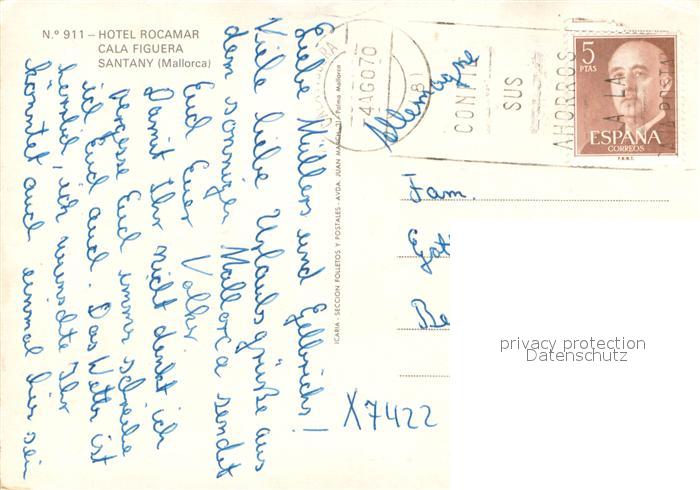 N.º 911 — HOTEL ROCAMAR
CALA FIGUERA
SANTANY (Mallorca)
Liebe Müllers und Gelbrichs!
Viele liebe Urlaubsgrüße aus
dem sonnigen Mallorca sendet
Euch Euer Volker
Damit Ihr nicht denkt ich
vergesse Euch immer schreibe
ich Euch auch. Das Wetter ist
herrlich, ich wünschte Ihr
könntet auch einmal hier sein
ICARIA - SECCION FOLLETOS Y POSTALES - AVDA. JUAN MARCH, Palma Mallorca
4AGO70
CONFIE
SUS
AHORROS
A LA
POSTAL
5
PTAS
ESPAÑA
CORREOS
F.N.M.T.
Allemagne
Fam.
Be
X7422
privacy protection
Datenschutz